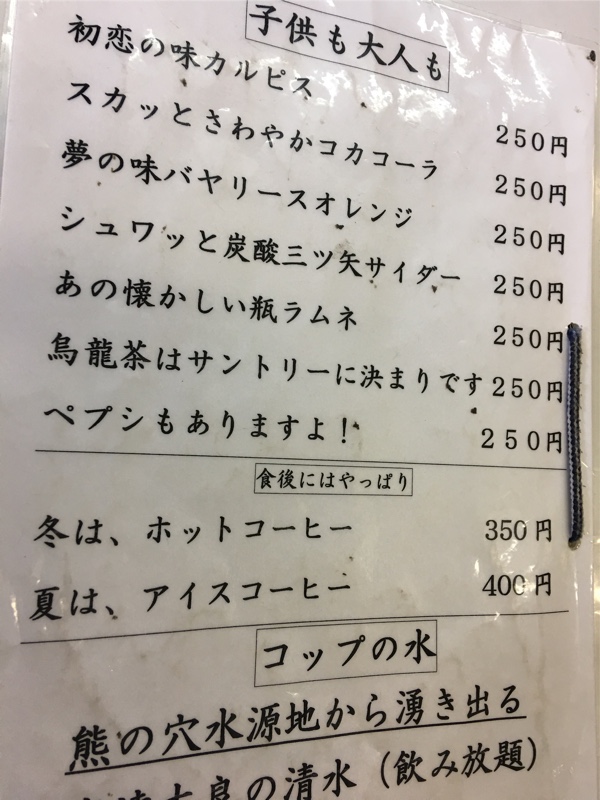 子供も大人も
初恋の味カルピス 250円
スカッとさわやかコカコーラ 250円
夢の味バヤリースオレンジ 250円
シュワッと炭酸三ツ矢サイダー 250円
あの懐かしい瓶ラムネ 250円
烏龍茶はサントリーに決まりです 250円
ペプシもありますよ! 250円
食後にはやっぱり
冬は、ホットコーヒー 350円
夏は、アイスコーヒー 400円
コップの水
熊の穴水源地から湧き出る
の清水(飲み放題)